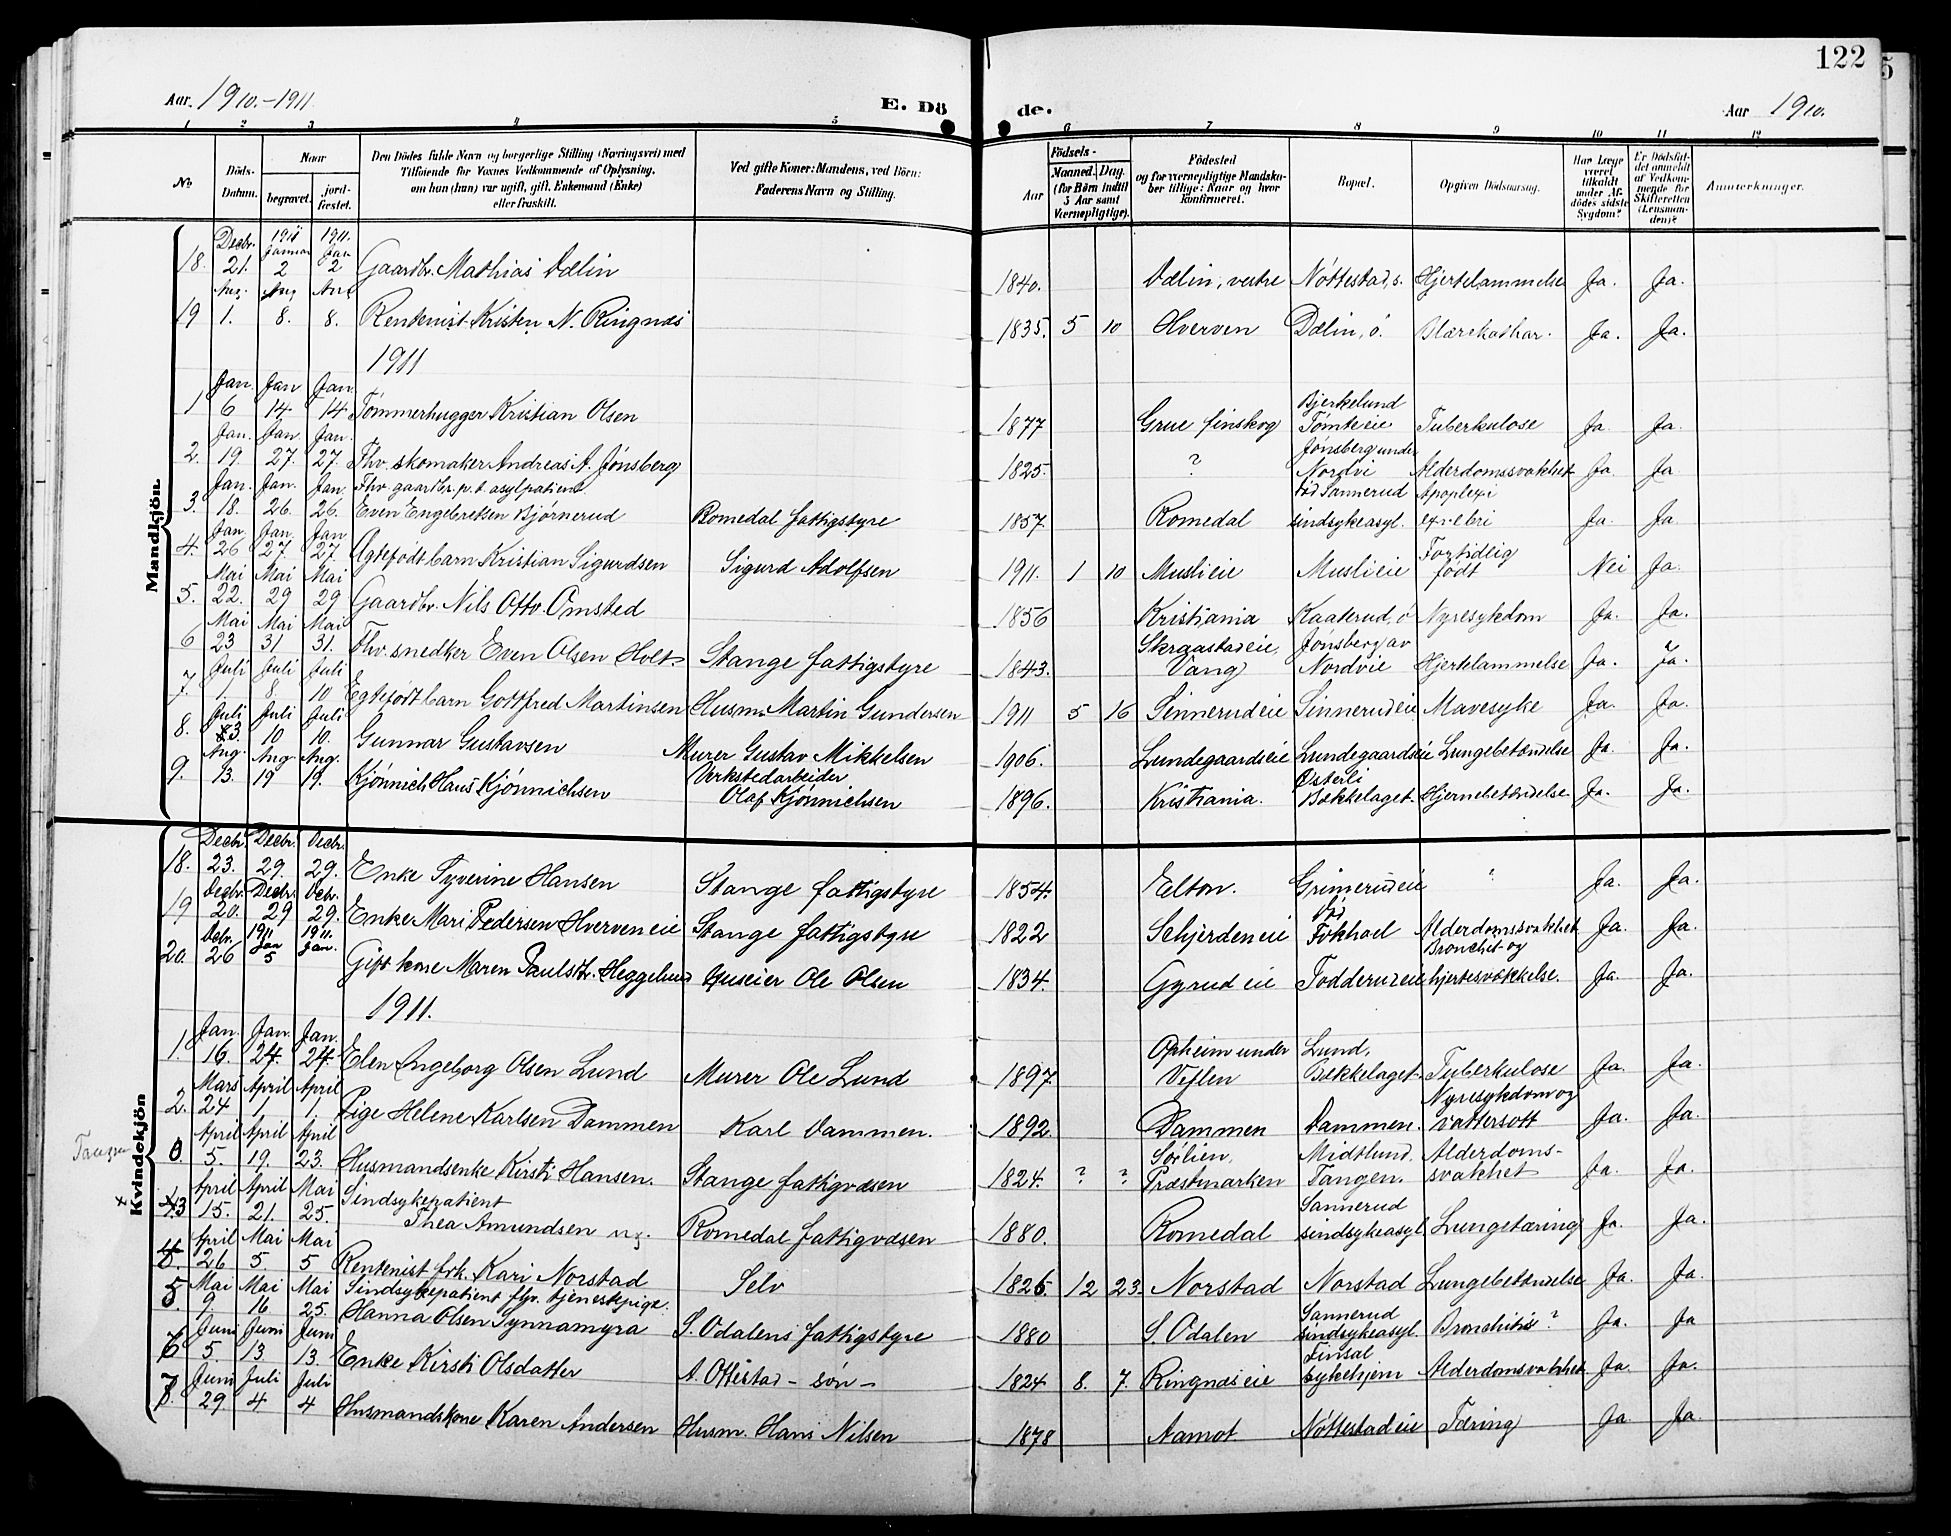 122
5
Aar. 1910.-1911
E. Dö
de.
Aar 1910.
1 2 3 4 5 6 7 8 9 10 11 12
No
Döds-Datum.
Naar
begravet.
jord-fæstet.
Den Dödes fulde Navn og borgerlige Stilling (Næringsvei) med
Tilföiende for Voxnes Vedkommende af Oplysning,
om han (hun) var ugift, gift, Enkemand (Enke)
eller fraskilt.
Ved gifte Koner: Mandens, ved Börn:
Faderens Navn og Stilling.
Födsels-
Aar
Maaned. Dag.
(for Börn indtil
5 Aar samt
Værnepligtige).
Födested
og for værnepligtige Mandska-
ber tillige: Naar og hvor
konfirmeret.
Bopæl.
Opgiven Dödsaarsag.
Har Læge
været
tilkaldt
under Af-
dödes sidste
Sygdom?
Er Dödsfal-
det anmeldt
af Vedkom-
mende for
Skifteretten
(Lensman-
den)?
Anmerkninger.
Mandkjön.
18. Decbr. 21. 1911 Januar 2 1911. Jan 2 Gaardbr. Mathias Dælin 1840. Dælin, vestre Nöttestad, s. Hjertelammelse Ja. Ja.
19 Aug. 1. Aug 8. Aug 8. Rentenist Kristen N. Ringnæs 1835. 5 10 Hverven Dælin, ö. Blærekathar. Ja. Ja.
1911
1 Jan. 6 Jan 14. Jan 14 Tømmerhugger Kristian Olsen 1877 Grue finskog Bjerkelund Tømteeie Tuberkulose Ja. Ja.
2. Jan. 19. Jan. 27. Jan. 27. Fhv. skomaker Andreas A. Jønsberg 1825. ? Jønsberg under Nordvi Alderdomssvakhet Ja. Ja
3. Jan. 18. Jan. 26. Jan 26. Fhv. gaardbr. p.t. asylpatient Even Engebretsen Bjørnerud Romedal fattigstyre 1857. Romedal Sannerud sindsykeasyl. Apoplexi cerebri Ja. Ja
4. Jan 26 Jan. 27 Jan 27 Ægtefødt barn Kristian Sigurdsen Sigurd Adolfsen 1911. 1 10 Muslieie Muslieie Fortidlig født Nei Ja.
5. Mai 22. Mai 29 Mai 29 Gaardbr. Nils Otto Omsted 1856 Kristiania Kaaterud, ö Nyresykdom Ja. Ja.
6 Mai 23 Mai 31 Mai 31. Fhv. snedker Even Olsen Holt Stange fattigstyre 1843. Skraastadeie, Vang Jønsberg av Nordvie Hjertelammelse Ja. Ja.
7. Juli 1. Juli 8. Juli 10 Egtefødt barn Gottfred Martinsen Husm. Martin Gundersen 1911 5 16 Sinnerudeie Sinnerudeie Mavesyke Ja. Ja.
8. Juli 3. Juli 10 Juli 10. Gunnar Gustavsen Murer Gustav Mikkelsen 1906. Lundegaardseie Lundegaardseie Lungebetændelse Ja. Ja.
9. Aug. 13. Aug. 19 Aug. 19. Kjønnich Hans Kjønnichsen Verkstedarbeider Olaf Kjønnichsen 1896. Kristiania. Østerli Bækkelaget. Hjernebetændelse Ja. Ja.
Kvindekjön
18. Decbr. 23. Decbr. 29. Decbr. 29. Enke Syverine Hansen Stange fattigstyre 1854. Elton. Grimerudeie ? Ja. Ja.
19 Decbr. 20. Decbr. 29 Debr. 29. Enke Mari Pedersen Hverveneie Stange fattigstyre 1822 Schjerdeneie Fokhoel Alderdomssvakhet Ja. Ja.
20. Debr. 26 1911 Jan 5 1911. Jan. Gift kone Maren Paulsdtr. Heggelund Huseier Ole Olsen 1834. Gyrudeie Fodderudeie Bronchit og hjertesvækkelse. Ja. Ja.
1911.
1 Jan. 16. Jan. 24. Jan. 24. Elen Ingeborg Olsen Lund Murer Ole Lund 1897. Opheim under Veflen Lund, Bækkelaget. Tuberkulose Ja. Ja.
2. Mars 24 April 1. April 1. Pige Helene Karlsen Dammen Karl Dammen. 1892. Dammen Dammen. Nyresykdom og vattersott Ja. Ja.
Tangen April 5. April 19. April 23. Husmandsenke Kirsti Hansen. Stange fattigvæsen 1824. ? ? Sørlien, Præstmarken Midtlund, Tangen. Alderdoms-svakhet Ja. Ja.
3 April 15. April 21. Mai 25. Sindsykepatient Thea Amundsen ug. Romedal fattigvæsen 1880. Romedal Sannerud sindsykeasyl Lungetæring Ja. Ja.
4. April 26 Mai 5. Mai 5 Rentenist frk. Kari Norstad Selv 1826. 12 23. Norstad Norstad Lungebetændelse Ja. Ja.
5. Mai 9. Mai 16 Mai 25. Sindsykepatient fhv. tjenestepige Hanna Olsen Synnamyra S. Odalens fattigstyre 1880 S. Odalen Sannerud sindsykeasyl. Bronchitis? Ja. Ja
6 Juni 5. Juni 13 Juni 13. Enke Kirsti Olsdatter A. Ottestad - søn - 1824 8. 7. Ringnæseie Finsal sykehjem Alderdomsvakhet Ja. Ja.
7. Juni 29 Juli 4 Juli 4 Husmandskone Karen Andersen Husm. Hans Nilsen 1878 Aamot Nøttestadeie Tæring Ja. Ja.